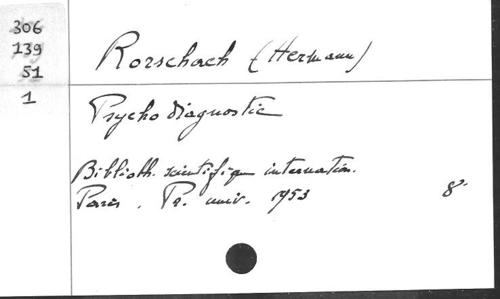 306
139
51
1
Rorschach (Hermann)
Psychodiagnostic
Biblioth. scientifique internation.
Paris. Pr. univ. 1953 8°